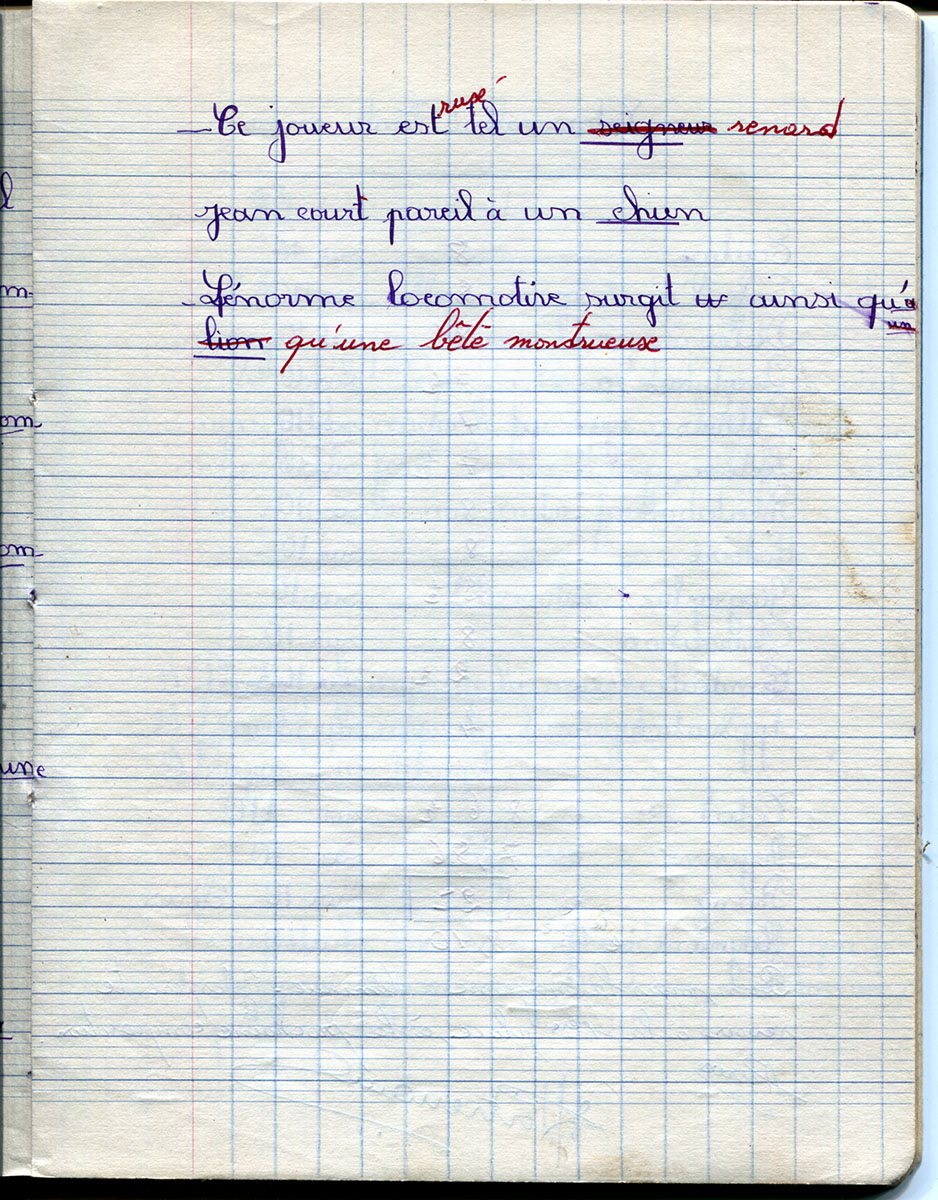 rusé
- Ce joueur est tel un seigneur renard
Jean court pareil à un chien
- L'énorme locomotive surgit ainsi qu'
un
lion qu'une bête monstrueuse
l
m
om
om
une